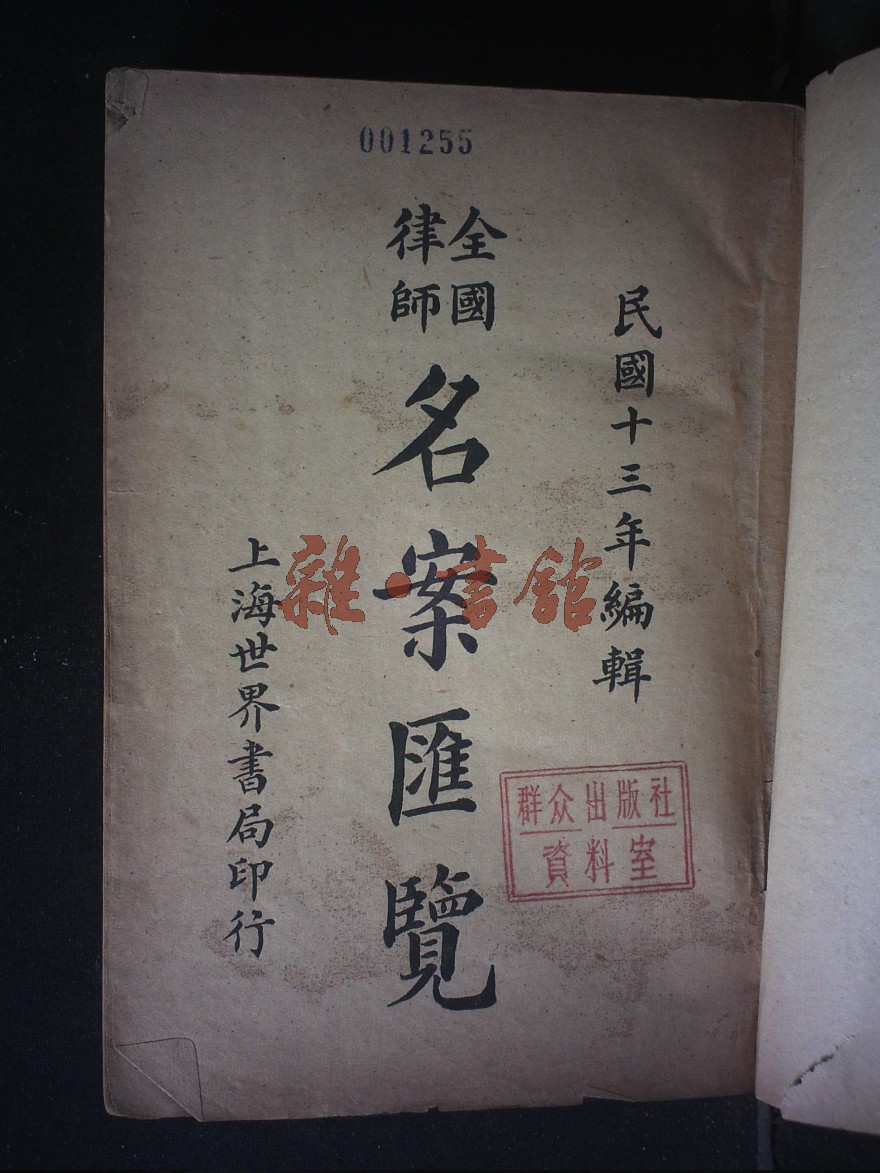 001255
民國十三年編輯
全國
律師
名案匯覽
上海世界書局印行
群众出版社
資料室
雜·書館